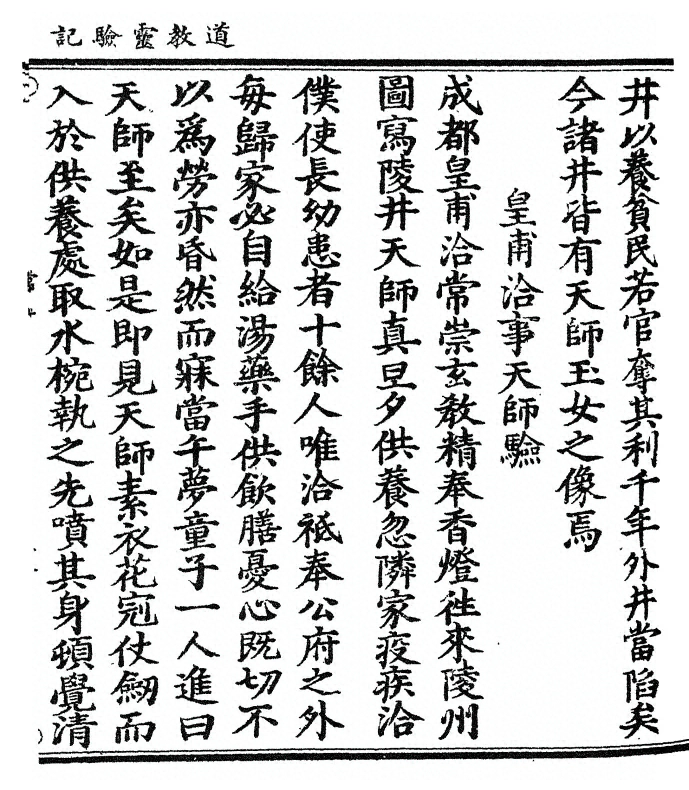 道教靈驗記
井以養貧民若官奪其利千年外井當陷矣
今諸井皆有天師玉女之像焉
皇甫洽事天師驗
成都皇甫洽常崇玄教精奉香燈往來陵州
圖寫陵井天師真旦夕供養忽隣家疫疾洽
僕使長幼患者十餘人唯洽祗奉公府之外
每歸家必自給湯藥手供飲膳憂心既切不
以為勞亦昏然而寐當午夢童子一人進曰
天師至矣如是即見天師素衣花冠仗劒而
入於供養處取水椀執之先噴其身頓覺清